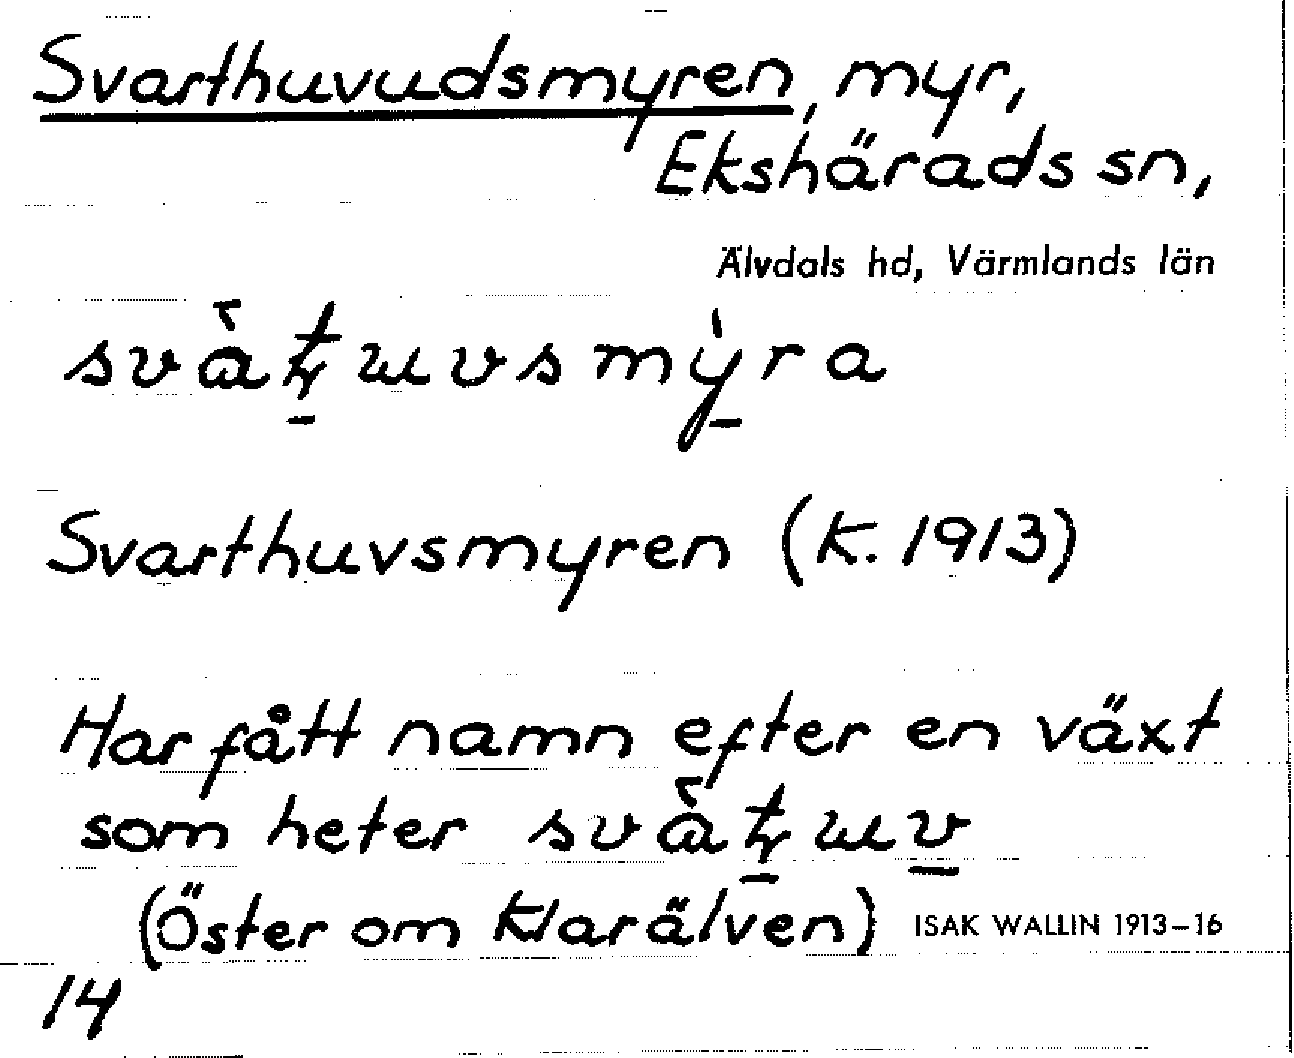 Svarthuvudsmyren, myr,
Ekshärads sn,
Älvdals hd, Värmlands län
Svarthuvsmyren (K. 1913)
Har fått namn efter en växt
som heter
(Öster om Klarälven) ISAK WALLIN 1913–16
14